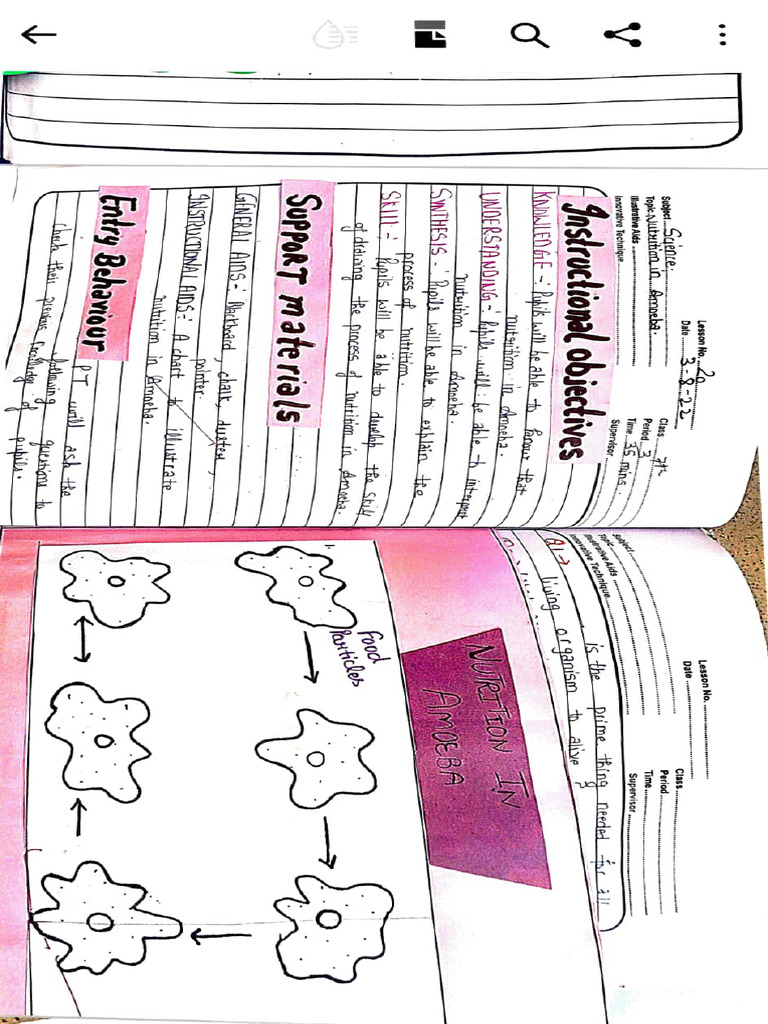 Lesson No. 20
Date 3-8-22
Class 7th
Subject Science
Period 3
Topic Nutrition in Amoeba.
Time 35 mins.
Illustrative Aids
Supervisor
Innovative Technique
Instructional objectives
KNOWLEDGE - Pupils will be able to know that
nutrition in Amoeba.
UNDERSTANDING - Pupils will be able to interpret
nutrition in Amoeba.
SYNTHESIS - Pupils will be able to explain the
process of nutrition.
SKILL - Pupils will be able to develop the skill
of drawing the process of nutrition in Amoeba.
SUPPORT materials
GENERAL AIDS - Blackboard, chalk, duster,
pointer.
INSTRUCTIONAL AIDS - A chart to illustrate
nutrition in Amoeba.
Entry Behaviour
PT will ask the
following questions to
check their previous knowledge of pupils.
Lesson No.
Date
Class
Subject
Period
Topic
Time
Illustrative Aids
Supervisor
Innovative Technique
is the prime thing needed for all
living organism to alive ?
NUTRITION IN
AMOEBA
Food
Particles